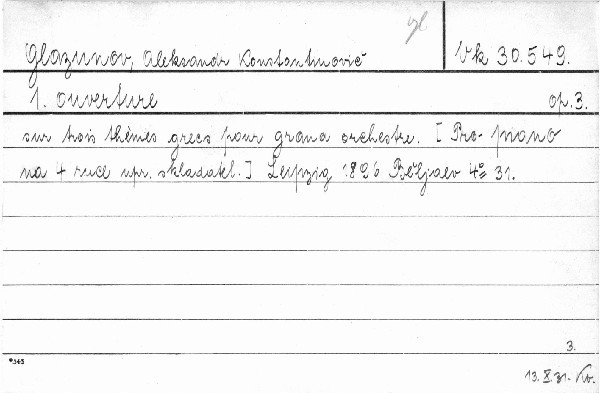 gl
Glazunov, Aleksandr Konstantinovič Vk 30.549.
1. ouverture op. 3.
sur trois thèmes grecs pour grand orchestre. [Pro piano
na 4 ruce upr. skladatel.] Leipzig 1896 Běljaev 4° 31.
3.
13.X.31. Kv.